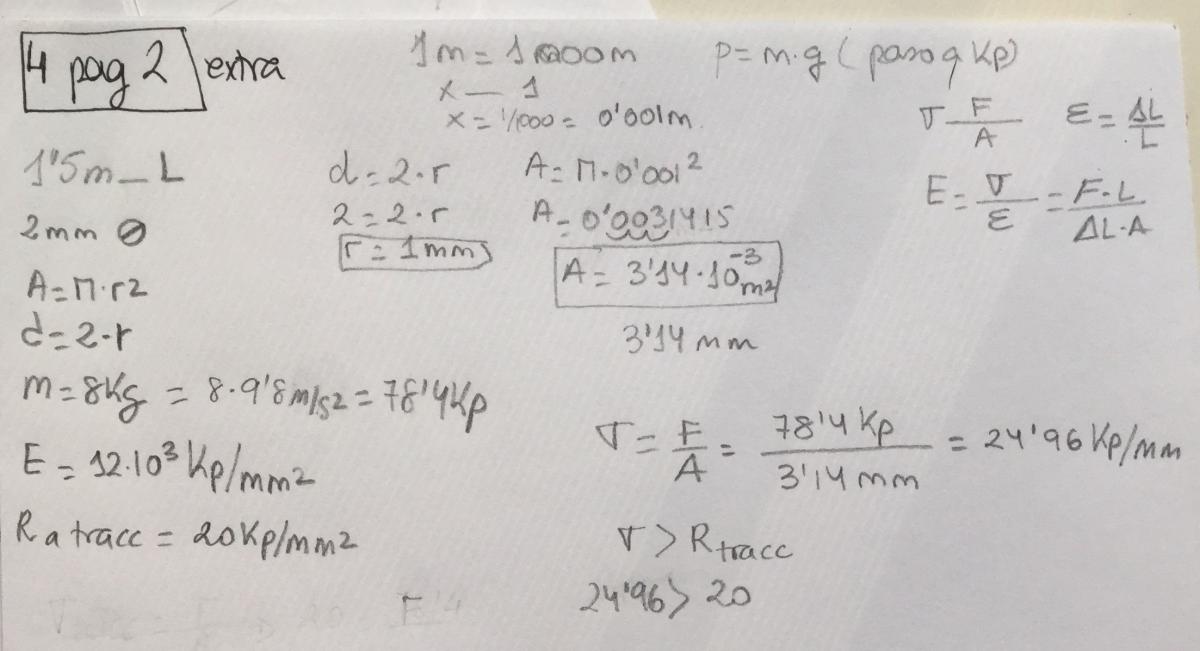 4 pag 2 extra
1m = 1000m
x — 1
x = 1/1000 = 0'001m
P = m·g (paso a Kp)
σ F/A
ε = ΔL/L
E = σ/ε = F·L/ΔL·A
1'5m _ L
2mm ⌀
A = π·r2
d = 2·r
d = 2·r
2 = 2·r
r = 1mm
A = π·0'001²
A = 0'0031415
A = 3'14·10⁻³ m2
3'14 mm
m = 8Kg = 8·9'8 m/s2 = 78'4 Kp
E = 12·10³ Kp/mm2
R a tracc = 20 Kp/mm2
σ = F/A = 78'4 Kp/3'14 mm = 24'96 Kp/mm
σ > R tracc
24'96 > 20